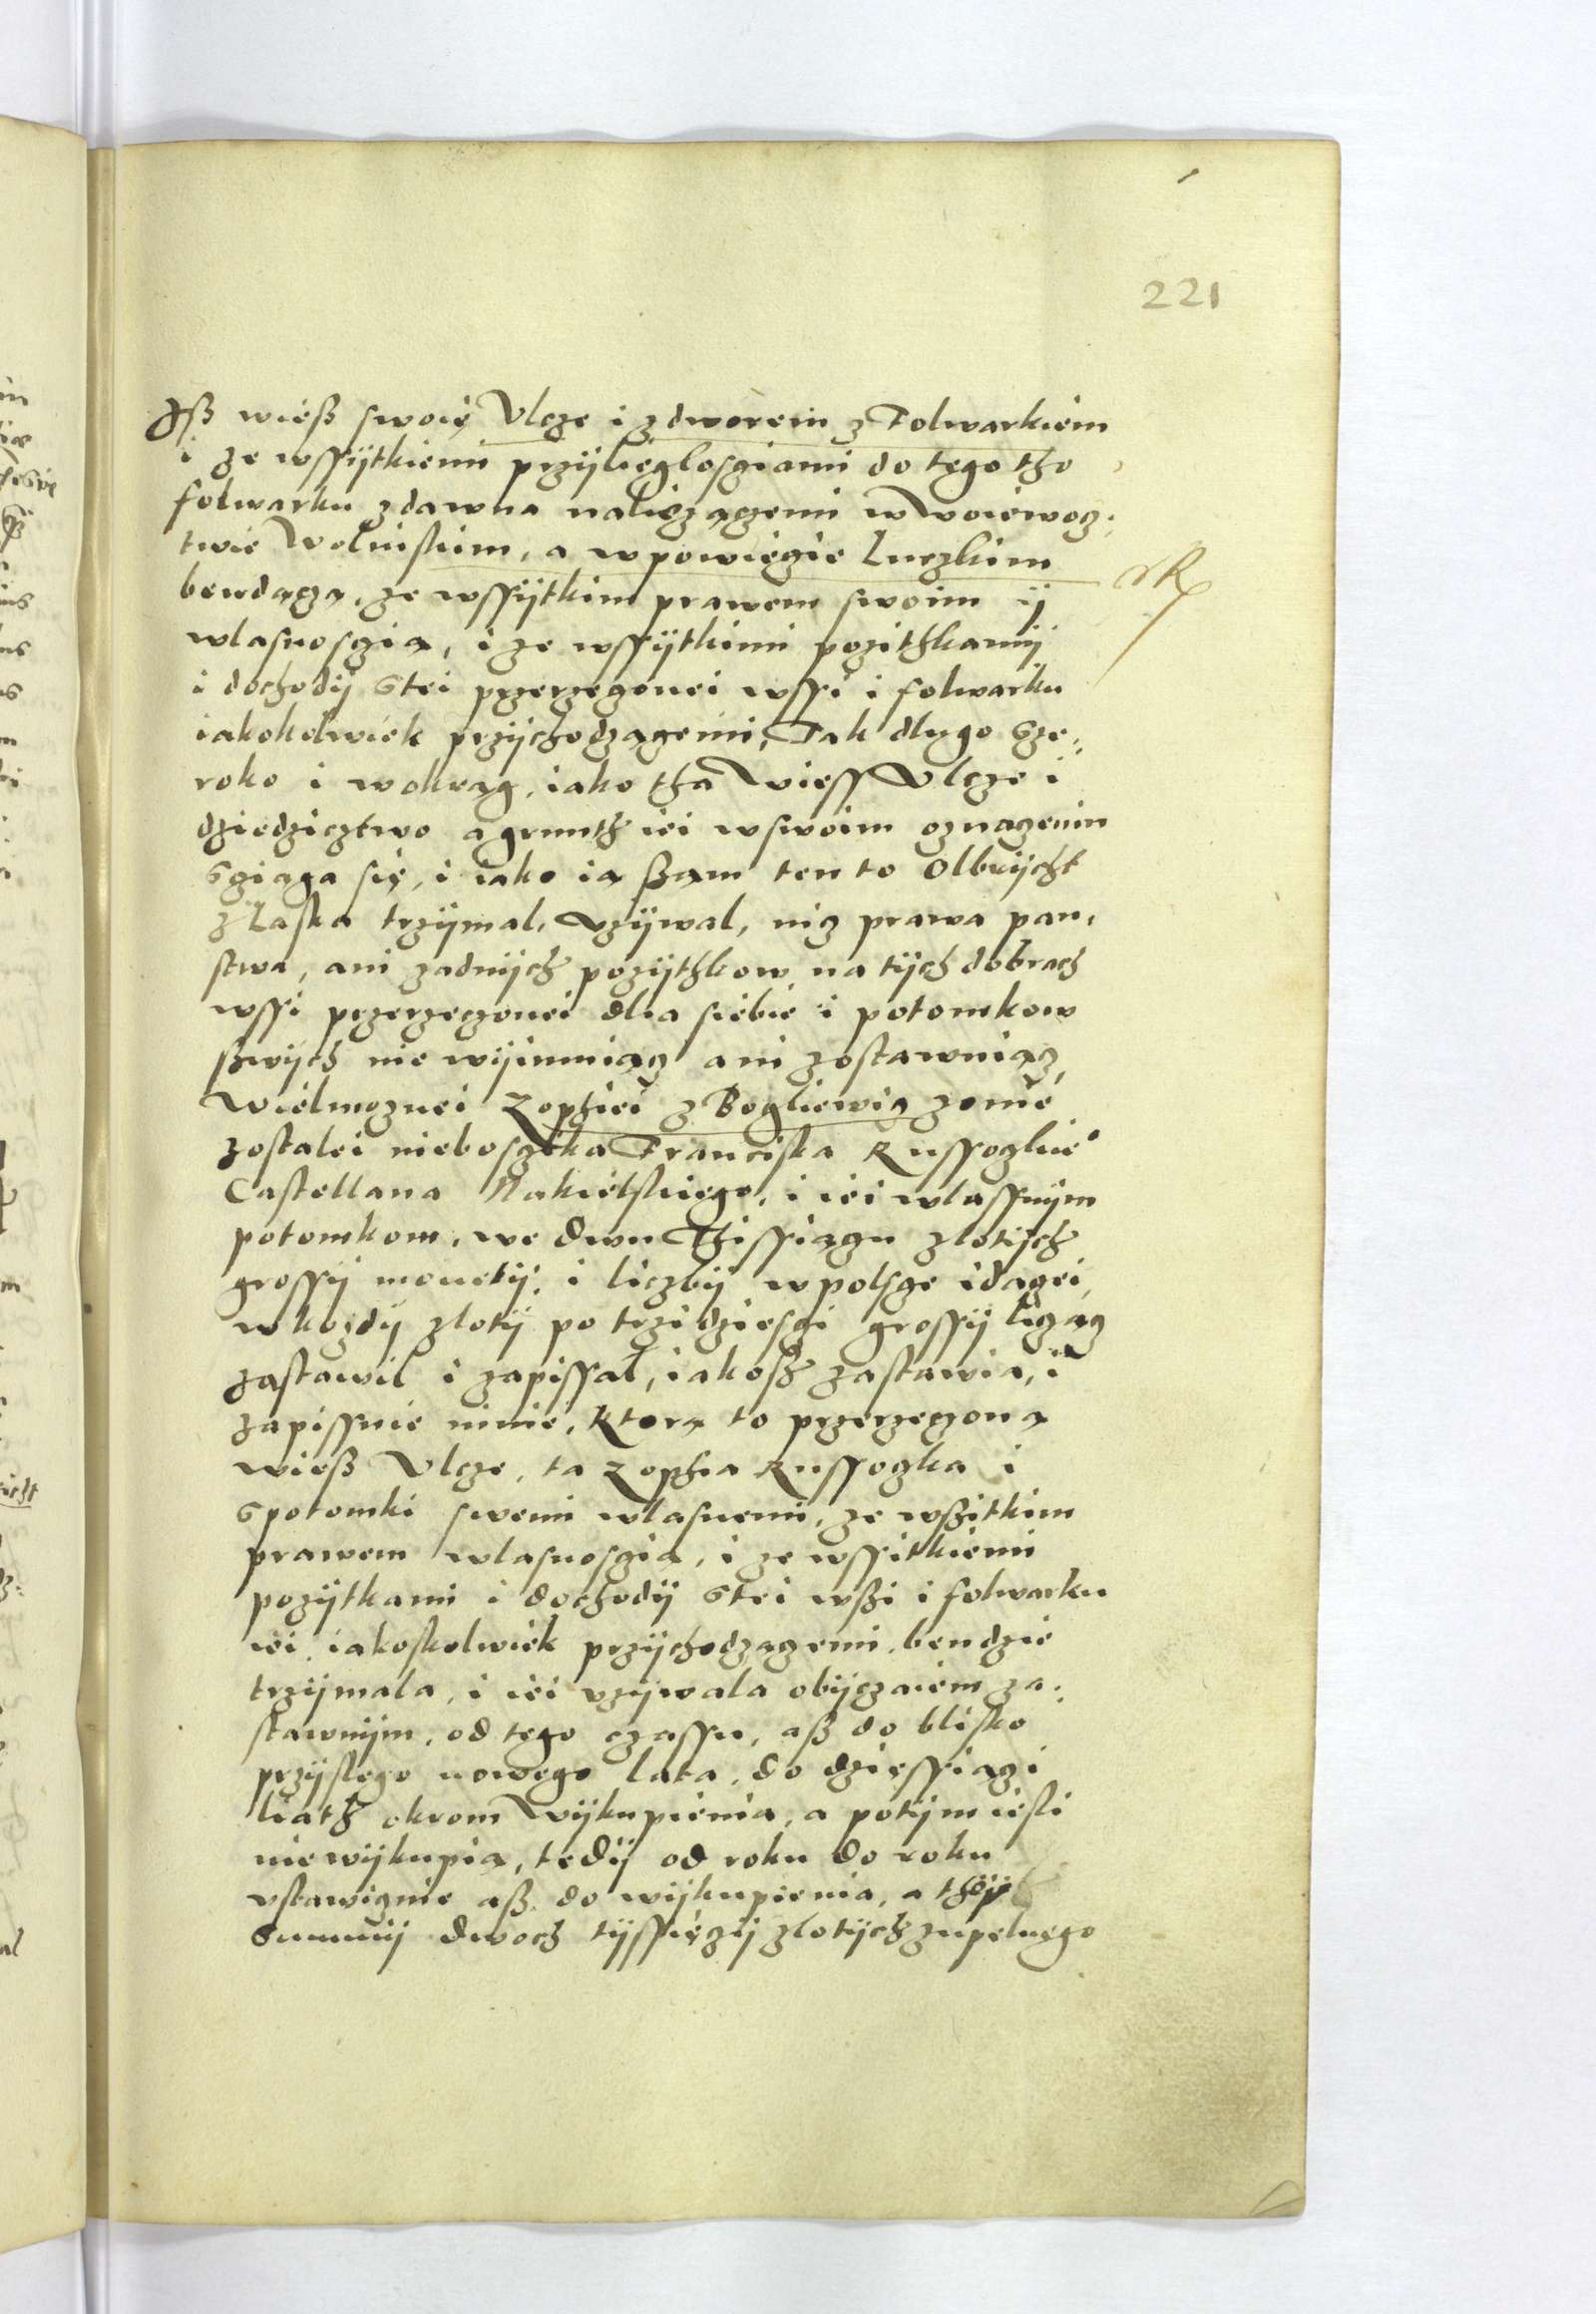 221
Iß wieß swoię Vlcze i zdworem z Folwarkiem
i ze wssÿtkiemi przÿlieglosciami do tego tho
folwarku zdawna naliezączemi wWoiewoz,
twie Wolinskim, a w powieczie Luczkim
bendączą, ze wssÿtkim prawem swoim ÿ
wlasnosczią, i ze wssÿtkimi pozithkamÿ
i dochodÿ stei przerzeczonei wssi i folwarku
iakokolwiek przÿchodzączemi, Tak dlugo sze,,
roko i wokrąg, iako tha Wiess Vlcze i
dziedzicztwo a grunth iei wswoim oznaczeniu
scziąga się, i iako ią ßam ten to Olbrÿcht
z Laska trzÿmal, vzÿwal, nicz prawa pan,
stwa, ani zadnÿch pozÿthkow na tÿch dobrach
wssi przerzeczonei dlia siebie i potomkow
ßwÿch nie wÿimuiącz ani zostawuiącz,
Wielmoznei Zophiei z Bogliewicz zonie
zostalei nieboszcka Franciska Russoczkie°
Castellana Nakielskiego, i iei wlassnÿm
potomkom, we dwu Thissiączu zlotÿch
grossÿ monetÿ, i liczbÿ wpolscze idączei,
w kozdÿ zlotÿ po trzidziesczi grossÿ licząc
zastawil i zapissał, iakoßz zastawia, i
zapissuie ninie, Ktorą to przerzeczoną
wieß Vlcze, ta Zophia Russoczka i
spotomki swemi wlasnemi, ze wßitkim
prawem wlasnosczią, i ze wssitkiemi
pozÿtkami i dochodÿ stei wßi i folwarku
iei, iakoskolwiek przÿchodzączemi, bendzie
trzÿmala, i iei vzÿwala obÿczaiem za,
stawnÿm, od tego czassu, aß do blisko
przÿslego nowego lata, do dziessiączi
liath okrom Wÿkupienia, a potÿm iesli
nie wÿkupią, tedÿ od roku do roku
vstawicznie aß do wÿkupienia, a
Summÿ dwoch tÿssięczÿ zlotÿch zupelnego